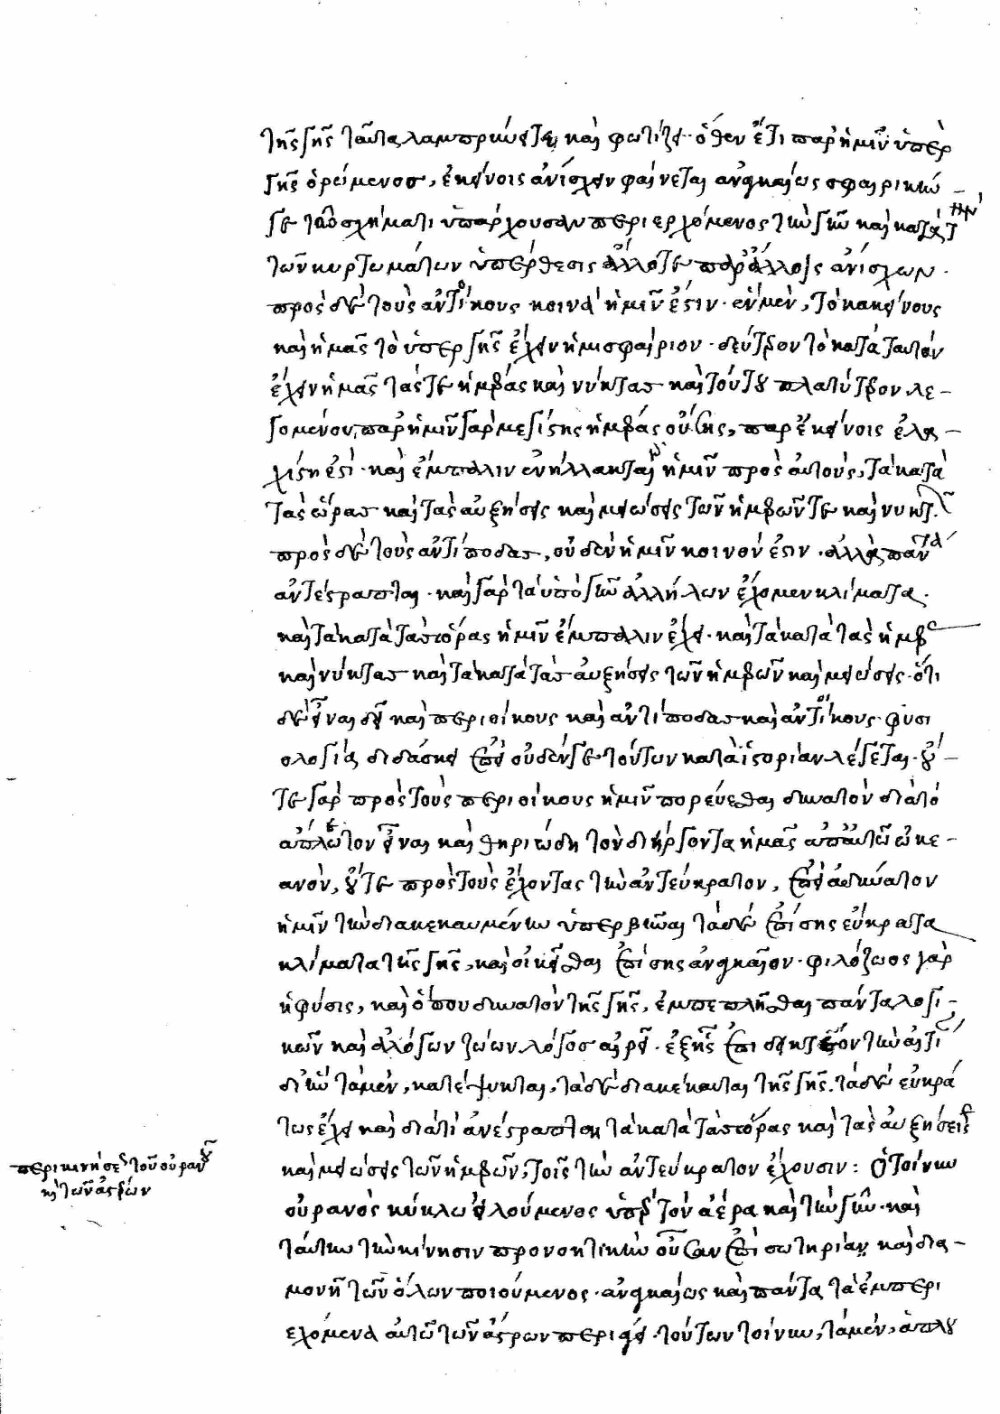 τῆς γῆς ταῦτα λαμπρύνεται καὶ φωτίζει· ὅθεν ἔτι παρ' ἡμῖν ὑπὲρ
γῆς ὁρώμενος, ἐκείνοις ἀνίσχειν φαίνεται ἀναγκαίως σφαιρικῷ
γε τῷ σχήματι ὑπάρχουσαν περιερχόμενος τὴν γῆν καὶ κατὰ τὴν
τῶν κυρτωμάτων ὑπέρθεσις ἄλλοτε παρ' ἄλλοις ἀνίσχων·
πρὸς δὲ τοὺς ἀντοίκους κοινὰ ἡμῖν ἐστιν· ἓν μὲν, τὸ κἀκείνους
καὶ ἡμᾶς τὸ ὑπὲρ γῆς ἔχειν ἡμισφαίριον· δεύτερον τὸ κατὰ ταυτὸν
ἔχειν ἡμᾶς τάς τε ἡμέρας καὶ νύκτας καὶ τούτου πλατύτερον λε-
γομένου, παρ' ἡμῖν γὰρ μεγίστης ἡμέρας οὔσης, παρ' ἐκείνοις ἐλα-
χίστη ἐστὶ· καὶ ἔμπαλιν ἐνήλλακται ἡμῖν πρὸς αὐτοὺς, τὰ κατὰ
τὰς ὥρας καὶ τὰς αὐξήσεις καὶ μειώσεις τῶν ἡμερῶν τε καὶ νυκτῶν
πρὸς δὲ τοὺς ἀντίποδας, οὐδὲν ἡμῖν κοινόν ἐστιν· ἀλλὰ πάντα
ἀντέστραπται· καὶ γὰρ τὰ ὑπὸ γῆν ἀλλήλων ἔχομεν κλίματα·
καὶ τὰ κατὰ τὰς ὥρας ἡμῖν ἔμπαλιν ἔχει· καὶ τὰ κατὰ τὰς ἡμέρας
καὶ νύκτας καὶ τὰ κατὰ τὰς αὐξήσεις τῶν ἡμερῶν καὶ μειώσεις· ὅτι
δὲ εἶναι δεῖ καὶ περιοίκους καὶ ἀντίποδας καὶ ἀντοίκους· φυσι
ολογία διδάσκει ἐπεὶ οὐδέν γε τούτων κατὰ ἱστορίαν λέγεται· οὔ-
τε γὰρ πρὸς τοὺς περιοίκους ἡμῖν πορεύεσθαι δυνατὸν διὰ τὸ
ἄπλωτον εἶναι καὶ θηριώδη τὸν διείργοντα ἡμᾶς ἀπ' αὐτῶν ὠκε-
ανὸν, οὔτε πρὸς τοὺς ἔχοντας τὴν ἀντεύκρατον, ἐπεὶ ἀδύνατον
ἡμῖν τὴν διακεκαυμένην ὑπερβῆναι τὰ δὲ ἐπίσης εὔκρατα
κλίματα τῆς γῆς, καὶ οἰκεῖσθαι ἐπίσης ἀναγκαῖον· φιλόζωος γὰρ
ἡ φύσις, καὶ ὅπου δυνατὸν τῆς γῆς, ἐμπεπλῆσθαι πάντα λογι-
κῶν καὶ ἀλόγων ζώων λόγος αἱρεῖ· ἑξῆς ἐπιδεικτέον τὴν αἰτίαν
δι' ἣν τὰ μὲν, κατέψυκται, τὰ δὲ διακέκαυται τῆς γῆς· τὰ δὲ εὐκρά
τως ἔχει καὶ διὰ τί ἀνέστραπται τὰ κατὰ τὰς ὥρας καὶ τὰς αὐξήσεις
καὶ μειώσεις τῶν ἡμερῶν, τοῖς τὴν ἀντεύκρατον ἔχουσιν: Ὁ τοίνυν
οὐρανὸς κύκλῳ εἰλούμενος ὑπὲρ τὸν ἀέρα καὶ τὴν γῆν· καὶ
ταύτην τὴν κίνησιν προνοητικὴν οὖσαν ἐπὶ σωτηρίᾳ καὶ δια-
μονῇ τῶν ὅλων ποιούμενος· ἀναγκαίως καὶ πάντα τὰ ἐμπερι
εχόμενα αὐτῷ τῶν ἄστρων περιάγει· τούτων τοίνυν, τὰ μὲν, ἁπλου
περὶ κινήσεως τοῦ οὐρανοῦ
καὶ τῶν ἀστέρων